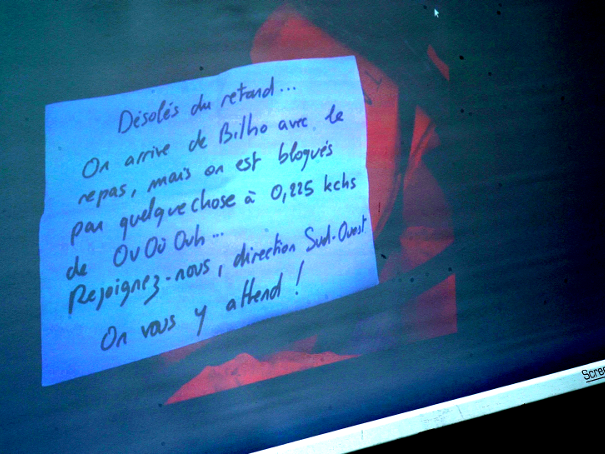 Désolés du retard...
On arrive de Bilho avec le
repas, mais on est bloqués
par quelque chose à 0,225 kchs
de Ov Où Ouh...
Rejoignez-nous, direction Sud-Ouest
On vous y attend !
Scree